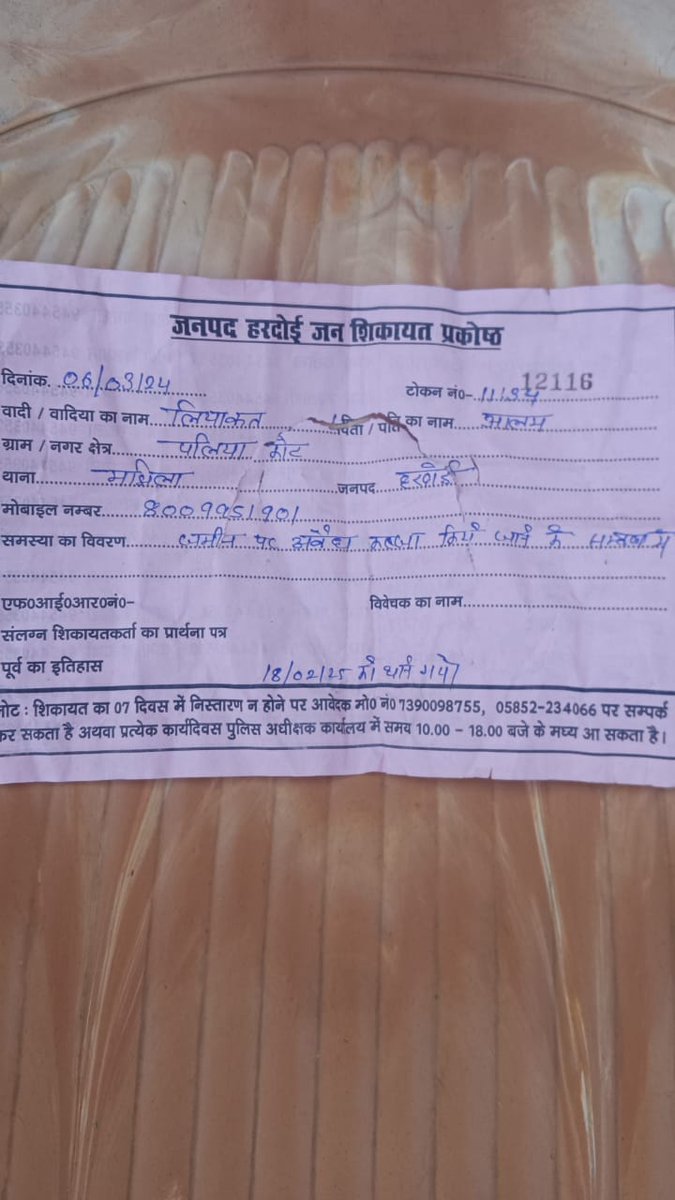 जनपद हरदोई जन शिकायत प्रकोष्ठ
दिनांक. 06/03/24 टोकन नं०- 12116
वादी / वादिया का नाम लियाकत पिता / पति का नाम आलम
ग्राम / नगर क्षेत्र पलिया कोट
थाना मझिला जनपद हरदोई
मोबाइल नम्बर 8009951901
समस्या का विवरण जमीन पर अवैध कब्जा किये जाने के सम्बन्ध में
एफ०आई०आर०नं०- विवेचक का नाम
संलग्न शिकायतकर्ता का प्रार्थना पत्र
पूर्व का इतिहास 18/02/25 को थाने गये
नोट : शिकायत का 07 दिवस में निस्तारण न होने पर आवेदक मो0 नं0 7390098755, 05852-234066 पर सम्पर्क
कर सकता है अथवा प्रत्येक कार्यदिवस पुलिस अधीक्षक कार्यालय में समय 10.00 – 18.00 बजे के मध्य आ सकता है।